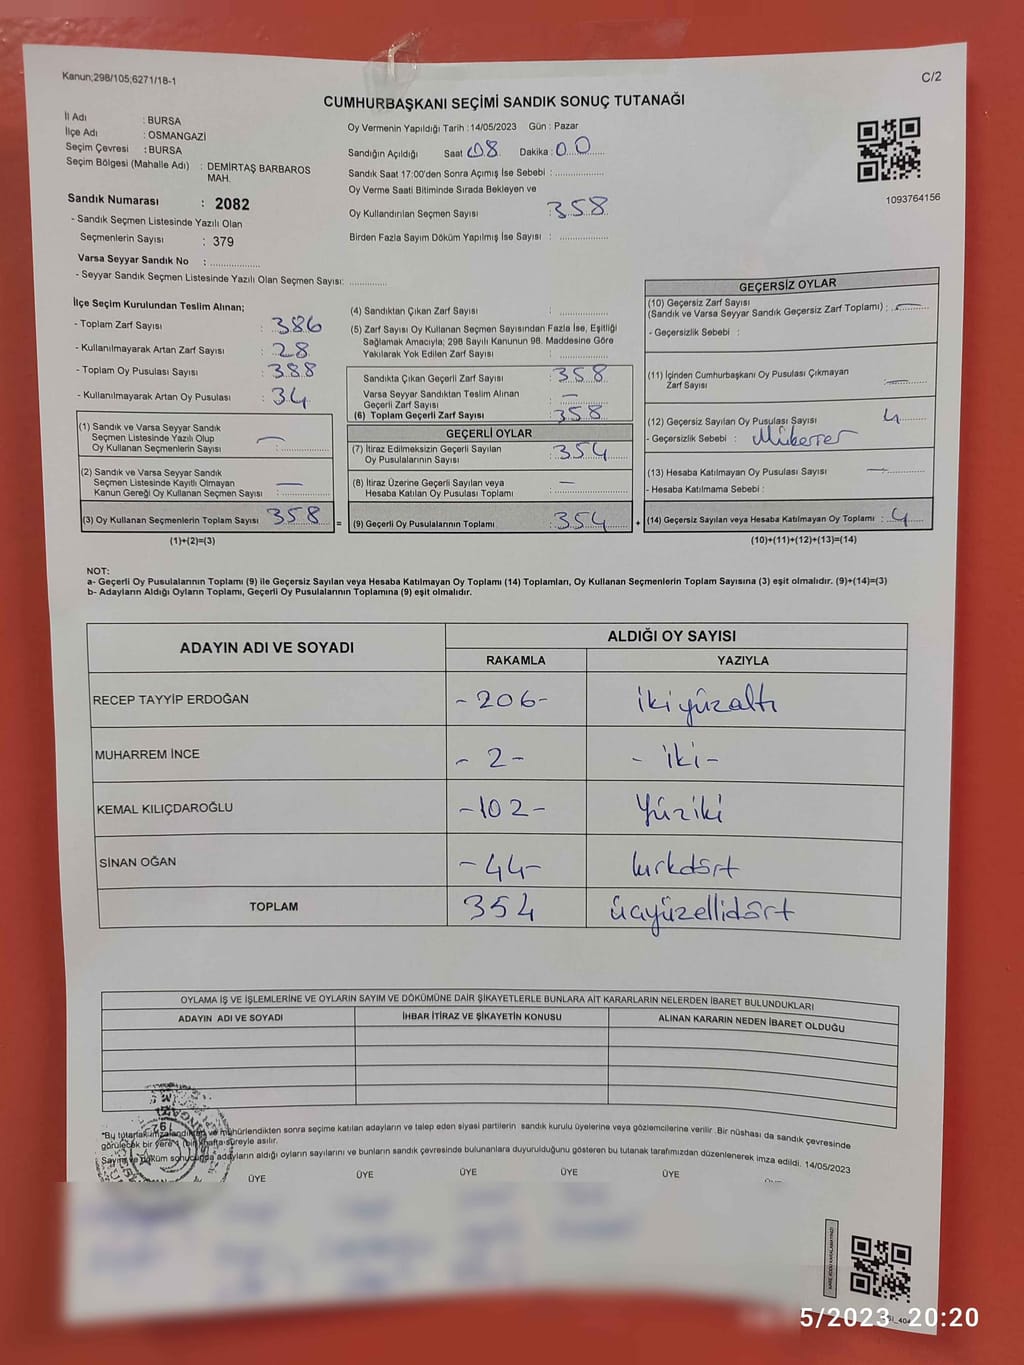 Kanun;298/105;6271/18-1
C/2
CUMHURBAŞKANI SEÇİMİ SANDIK SONUÇ TUTANAĞI
İl Adı : BURSA
İlçe Adı : OSMANGAZİ
Seçim Çevresi : BURSA
Seçim Bölgesi (Mahalle Adı) : DEMİRTAŞ BARBAROS
MAH.
Sandık Numarası : 2082
- Sandık Seçmen Listesinde Yazılı Olan
Seçmenlerin Sayısı : 379
Varsa Seyyar Sandık No : ..............
- Seyyar Sandık Seçmen Listesinde Yazılı Olan Seçmen Sayısı: ..............
Oy Vermenin Yapıldığı Tarih : 14/05/2023 Gün : Pazar
Sandığın Açıldığı Saat 08 Dakika : 00
Sandık Saat 17:00'den Sonra Açımış İse Sebebi : ..............
Oy Verme Saati Bitiminde Sırada Bekleyen ve
Oy Kullandırılan Seçmen Sayısı : 358
Birden Fazla Sayım Döküm Yapılmış İse Sayısı : ..............
1093764156
İlçe Seçim Kurulundan Teslim Alınan;
- Toplam Zarf Sayısı : 386
- Kullanılmayarak Artan Zarf Sayısı : 28
- Toplam Oy Pusulası Sayısı : 388
- Kullanılmayarak Artan Oy Pusulası : 34
(1) Sandık ve Varsa Seyyar Sandık
Seçmen Listesinde Yazılı Olup
Oy Kullanan Seçmenlerin Sayısı : —
(2) Sandık ve Varsa Seyyar Sandık
Seçmen Listesinde Kayıtlı Olmayan
Kanun Gereği Oy Kullanan Seçmen Sayısı : —
(3) Oy Kullanan Seçmenlerin Toplam Sayısı : 358 =
(1)+(2)=(3)
(4) Sandıktan Çıkan Zarf Sayısı : ..............
(5) Zarf Sayısı Oy Kullanan Seçmen Sayısından Fazla İse, Eşitliği
Sağlamak Amacıyla; 298 Sayılı Kanunun 98. Maddesine Göre
Yakılarak Yok Edilen Zarf Sayısı : ..............
Sandıkta Çıkan Geçerli Zarf Sayısı : 358
Varsa Seyyar Sandıktan Teslim Alınan
Geçerli Zarf Sayısı : —
(6) Toplam Geçerli Zarf Sayısı : 358
GEÇERLİ OYLAR
(7) İtiraz Edilmeksizin Geçerli Sayılan
Oy Pusulalarının Sayısı : 354
(8) İtiraz Üzerine Geçerli Sayılan veya
Hesaba Katılan Oy Pusulası Toplamı : —
(9) Geçerli Oy Pusulalarının Toplamı : 354 +
GEÇERSİZ OYLAR
(10) Geçersiz Zarf Sayısı
(Sandık ve Varsa Seyyar Sandık Geçersiz Zarf Toplamı) : —
- Geçersizlik Sebebi :
(11) İçinden Cumhurbaşkanı Oy Pusulası Çıkmayan
Zarf Sayısı : —
(12) Geçersiz Sayılan Oy Pusulası Sayısı : 4
- Geçersizlik Sebebi : Mükerrer
(13) Hesaba Katılmayan Oy Pusulası Sayısı : —
- Hesaba Katılmama Sebebi :
(14) Geçersiz Sayılan veya Hesaba Katılmayan Oy Toplamı : 4
(10)+(11)+(12)+(13)=(14)
NOT:
a- Geçerli Oy Pusulalarının Toplamı (9) ile Geçersiz Sayılan veya Hesaba Katılmayan Oy Toplamı (14) Toplamları, Oy Kullanan Seçmenlerin Toplam Sayısına (3) eşit olmalıdır. (9)+(14)=(3)
b- Adayların Aldığı Oyların Toplamı, Geçerli Oy Pusulalarının Toplamına (9) eşit olmalıdır.
ADAYIN ADI VE SOYADI
ALDIĞI OY SAYISI
RAKAMLA YAZIYLA
RECEP TAYYİP ERDOĞAN -206- ikiyüzaltı
MUHARREM İNCE - 2 - - iki -
KEMAL KILIÇDAROĞLU -102- Yüziki
SİNAN OĞAN -44- kırkdört
TOPLAM 354 üçyüzellidört
OYLAMA İŞ VE İŞLEMLERİNE VE OYLARIN SAYIM VE DÖKÜMÜNE DAİR ŞİKAYETLERLE BUNLARA AİT KARARLARIN NELERDEN İBARET BULUNDUKLARI
ADAYIN ADI VE SOYADI İHBAR İTİRAZ VE ŞİKAYETİN KONUSU ALINAN KARARIN NEDEN İBARET OLDUĞU
"Bu tutanak imzalandıktan ve mühürlendikten sonra seçime katılan adayların ve talep eden siyasi partilerin sandık kurulu üyelerine veya gözlemcilerine verilir. Bir nüshası da sandık çevresinde
görülecek bir yere 1 (bir) hafta süreyle asılır.
Sayım ve döküm sonucunda adayların aldığı oyların sayılarını ve bunların sandık çevresinde bulunanlara duyurulduğunu gösteren bu tutanak tarafımızdan düzenlenerek imza edildi. 14/05/2023
ÜYE ÜYE ÜYE ÜYE ÜYE
5/2023 20:20